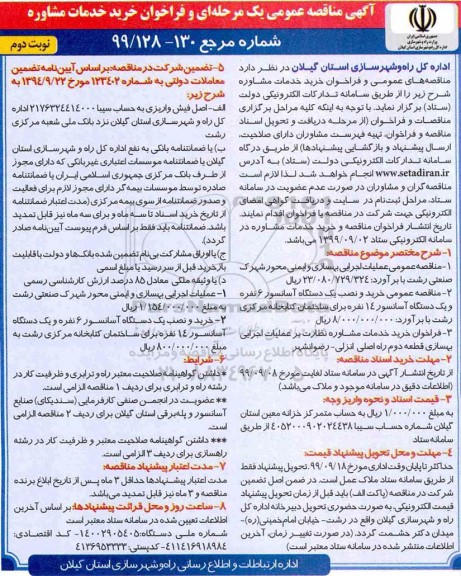 آگهی مناقصه عمومی یک مرحله‌ای و فراخوان خرید خدمات مشاوره
شماره مرجع ۱۳۰- ۹۹/۱۲۸
نوبت دوم
اداره کل راه‌وشهرسازی استان گیلان در نظر دارد
مناقصه‌های عمومی و فراخوان خرید خدمات مشاوره
شرح زیر را از طریق سامانه تدارکات الکترونیکی دولت
(ستاد) برگزار نماید. با توجه به اینکه کلیه مراحل برگزاری
مناقصات و فراخوان (از مرحله دریافت و تحویل اسناد
مناقصه و فراخوان، تهیه فهرست مشاوران دارای صلاحیت،
ارسال پیشنهاد و بازگشایی پیشنهادها) از طریق درگاه
سامانه تدارکات الکترونیکی دولت (ستاد) به آدرس
www.setadiran.ir انجام خواهد شد لذا لازم است
مناقصه‌گران و مشاوران در صورت عدم عضویت در سامانه
ستاد، مراحل ثبت‌نام در سایت و دریافت گواهی امضای
الکترونیکی جهت شرکت در مناقصه و فراخوان اقدام نمایند.
تاریخ انتشار فراخوان مناقصه و خرید خدمات مشاوره در
سامانه الکترونیکی ستاد ۱۳۹۹/۰۹/۰۲ می‌باشد.
۱- شرح مختصر موضوع مناقصه:
۱- مناقصه عمومی عملیات اجرایی بهسازی و ایمنی محور شهرک
صنعتی رشت با برآورد: ۲۳/۰۸۰/۷۲۹/۳۲۴ ریال
۲- مناقصه عمومی خرید و نصب یک دستگاه آسانسور ۶ نفره
و یک دستگاه آسانسور ۱۴ نفره برای ساختمان کتابخانه مرکزی
رشت با برآورد: ۸/۰۰۰/۰۰۰/۰۰۰ ریال
۳- فراخوان خرید خدمات مشاوره نظارت بر عملیات اجرایی
بهسازی قطعه دوم راه اصلی انزلی - رضوانشهر
۲- مهلت خرید اسناد مناقصه:
از تاریخ انتشار آگهی در سامانه ستاد لغایت مورخ ۹۹/۰۹/۰۸
(اطلاعات دقیق در سامانه موجود و ملاک می‌باشد)
۳- قیمت اسناد و نحوه واریز وجه:
به مبلغ ۱/۰۰۰/۰۰۰ ریال به حساب متمرکز خزانه معین استان
گیلان شماره حساب سیبا ۴۰۵۲۰۰۰۹۰۲۰۲۴۴۳۸ از طریق
سامانه ستاد
۴- مهلت و محل تحویل پیشنهاد قیمت:
حداکثر تا پایان وقت اداری مورخ ۹۹/۰۹/۱۸. تحویل پیشنهاد فقط
از طریق سامانه ستاد ملاک عمل است. در ضمن اصل تضمین
شرکت در مناقصه (پاکت الف) باید قبل از زمان تحویل پیشنهاد
قیمت الکترونیکی، به صورت حضوری تحویل دبیرخانه اداره کل
راه و شهرسازی گیلان واقع در رشت- خیابان امام‌خمینی(ره)-
میدان دکتر حشمت گردد. (در صورت تغییر زمان، آخرین
اطلاعات منتشر شده در سامانه ستاد معتبر است)
۵- تضمین شرکت در مناقصه: براساس آیین‌نامه تضمین
معاملات دولتی به شماره ۱۲۳۴۰۲ مورخ ۱۳۹۴/۹/۲۲ به
شرح زیر:
الف- اصل فیش واریزی به حساب سیبا ۲۱۷۶۳۲۴۴۱۴۰۰۰ اداره
کل راه و شهرسازی استان گیلان نزد بانک ملی شعبه مرکزی
رشت
ب) یا ضمانتنامه بانکی به نفع اداره کل راه و شهرسازی استان
گیلان یا ضمانتنامه موسسات اعتباری غیربانکی که دارای مجوز
از طرف بانک مرکزی جمهوری اسلامی ایران یا ضمانتنامه
صادره توسط موسسات بیمه‌گر دارای مجوز لازم برای فعالیت
و صدور ضمانتنامه از سوی بیمه مرکزی (مدت اعتبار ضمانتنامه
از تاریخ خرید اسناد تا سه ماه و برای سه ماه نیز قابل تمدید
باشد. ضمانتنامه باید فقط بر اساس فرم پیوست آیین‌نامه صادر
گردد).
ج) یا اوراق مشارکت بی‌نام تضمین شده بانک‌ها و دولت با قابلیت
بازخرید قبل از سررسید با مبلغ اسمی
د) یا وثیقه ملکی معادل ۸۵ درصد ارزش کارشناسی رسمی
۱- عملیات اجرایی بهسازی و ایمنی محور شهرک صنعتی رشت
۲- خرید و نصب یک دستگاه آسانسور ۶ نفره و یک دستگاه
آسانسور ۱۴ نفره برای ساختمان کتابخانه مرکزی رشت به
مبلغ ۸۰۰/۰۰۰/۰۰۰ ریال
۶- شرایط:
*داشتن گواهینامه صلاحیت معتبر راه و ترابری و ظرفیت کار در
رشته راه و ترابری برای ردیف ۱ مناقصه الزامی است.
** عضویت در انجمن صنفی کارفرمایی (سندیکای) صنایع
آسانسور و پله‌برقی استان گیلان برای ردیف ۲ مناقصه الزامی
است.
*** داشتن گواهینامه صلاحیت معتبر و ظرفیت کار در رشته
راهسازی برای ردیف ۳ الزامی است.
۷- مدت اعتبار پیشنهاد مناقصه:
مدت اعتبار پیشنهادها حداقل ۳ ماه پس از تاریخ ابلاغ برنده
مناقصه و ۳ ماه نیز قابل تمدید می‌باشد.
۸- ساعت روز و محل قرائت پیشنهادها: بر اساس آخرین
اطلاعات تعیین شده در سامانه ستاد معتبر است
شماره ملی دستگاه: ۱۴۰۰۲۹۰۵۴۰۵- کد اقتصادی:
۴۱۱۴۱۶۹۱۸۹۸۴- کدپستی: ۴۱۳۶۹۵۳۳۳۳
اداره ارتباطات و اطلاع رسانی راه‌وشهرسازی استان گیلان